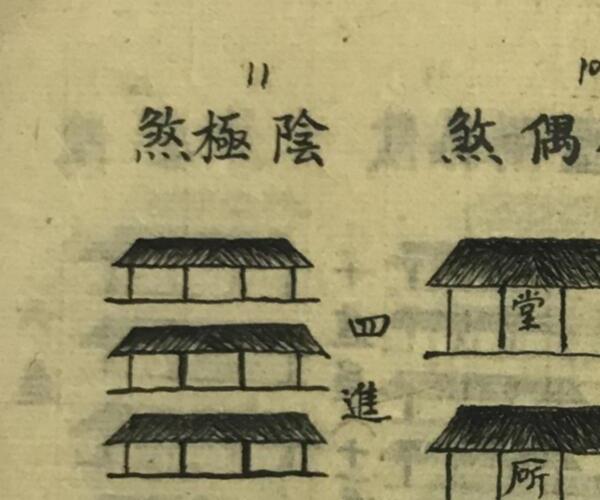 10
偶煞
堂
所
11
陰極煞
四進